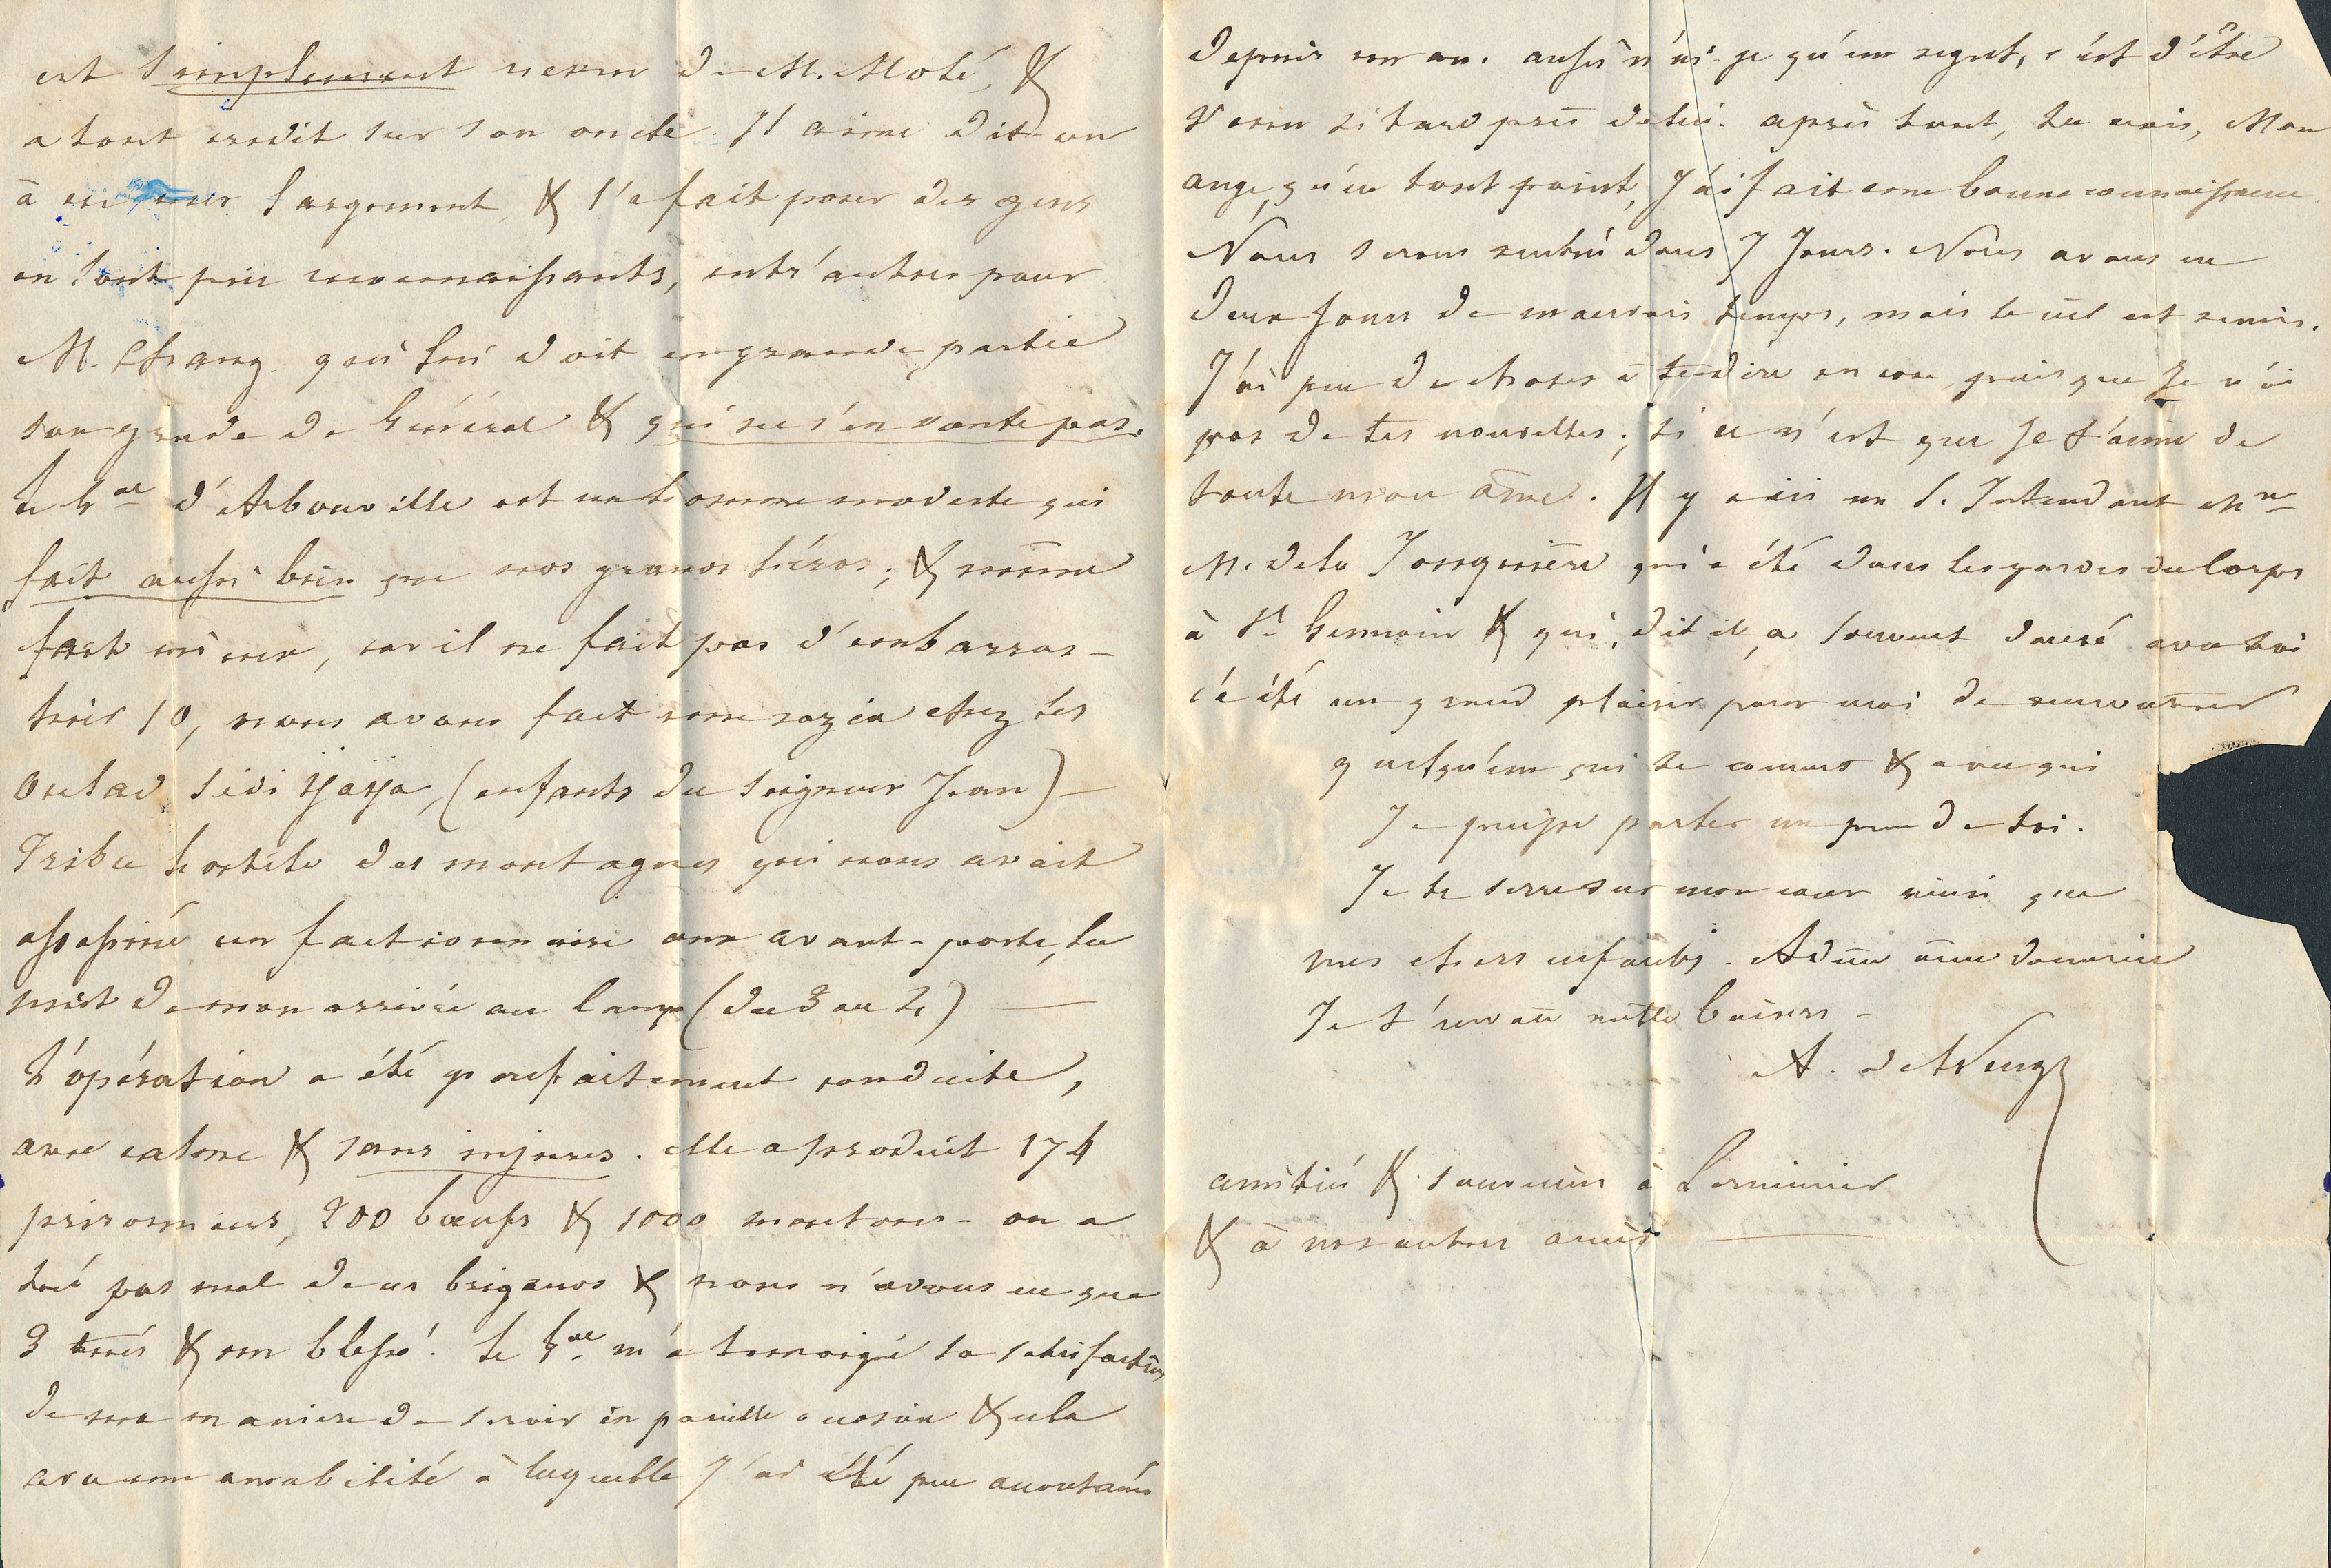 est simplement neveu de M. Molé, &
a tout crédit sur son oncle. Il aime dit-on
à en user largement, & l'a fait pour des gens
on tout peu reconnaissants, entr'autres pour
M. Chang. qui lui doit en grande partie
son grade de Général & qui ne s'en vante pas.
le Gal d'Arbouville est un homme modeste qui
fait aussi bien que nos grands héros; & même
fait mieux, car il ne fait pas d'embarras —
hier 10, nous avons fait une razia chez les
Oulad Sidi Yaya, (enfants du Seigneur Jean) —
Tribu hostile des montagnes qui nous avait
assassiné un factionnaire aux avant-postes, la
nuit de mon arrivée au Camp (du 3 au 4) —
L'opération a été parfaitement conduite,
avec calme & sans injures. elle a produit 174
prisonniers, 200 bœufs & 1000 moutons - on a
tué pas mal de ces brigands & nous n'avons eu que
3 tués & un blessé. Le Gal m'a témoigné sa satisfaction
de ma maniere de servir en pareille occasion & cela
avec une amabilité à laquelle j'ai été peu accoutumé
depuis un an. aussi n'ai-je qu'un regret, c'est d'être
venu si tard près de lui. après tout, tu vois, Mon
ange, qu'en tout point, j'ai fait une bonne connaissance.
Nous serons rentrés dans 7 Jours. Nous avons eu
deux jours de mauvais temps, mais le ciel est remis.
J'ai peu de choses à te dire encore, puisque je n'ai
pas de tes nouvelles; si ce n'est que je t'aime de
toute mon âme. Il y a ici un S. Intendant Mre
M. de la Jonquière qui a été dans les gardes du Corps
à St Germain & qui, dit il, a souvent dansé avec toi
c'a été un grand plaisir pour moi de rencontrer
quelqu'un qui te connut & avec qui
Je puisse parler un peu de toi.
Je te serre sur mon cœur ainsi que
mes chers enfants. Adieu amie
Je t'envoie mille baisers —
A. de
amitiés & souvenirs à Lerminier
& à nos autres amis